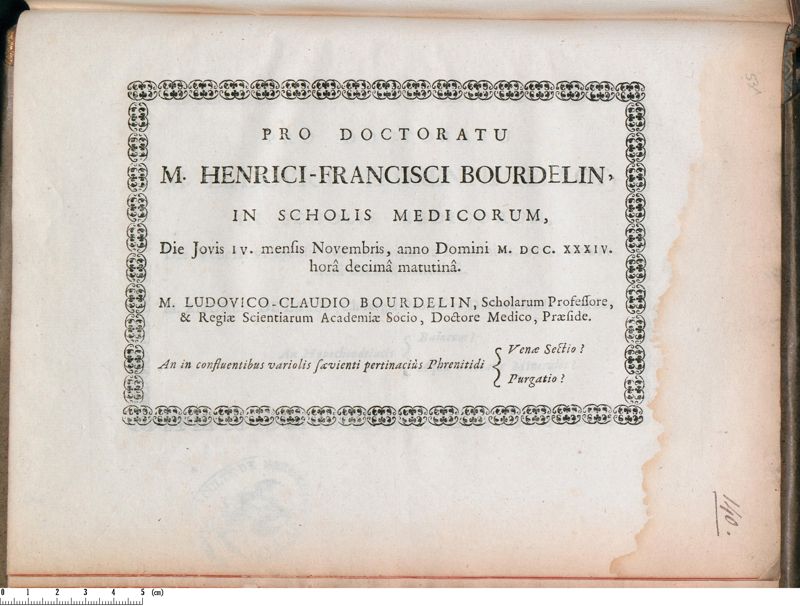 PRO DOCTORATU
M. HENRICI-FRANCISCI BOURDELIN,
IN SCHOLIS MEDICORUM,
Die Jovis IV. menſis Novembris, anno Domini M. DCC. XXXIV.
horâ decimâ matutinâ.
M. LUDOVICO-CLAUDIO BOURDELIN, Scholarum Profeſſore,
& Regiæ Scientiarum Academiæ Socio, Doctore Medico, Præſide.
An in confluentibus variolis ſævienti pertinaciùs Phrenitidi { Venæ Sectio ?
Purgatio ?
140.
0 1 2 3 4 5 (cm)